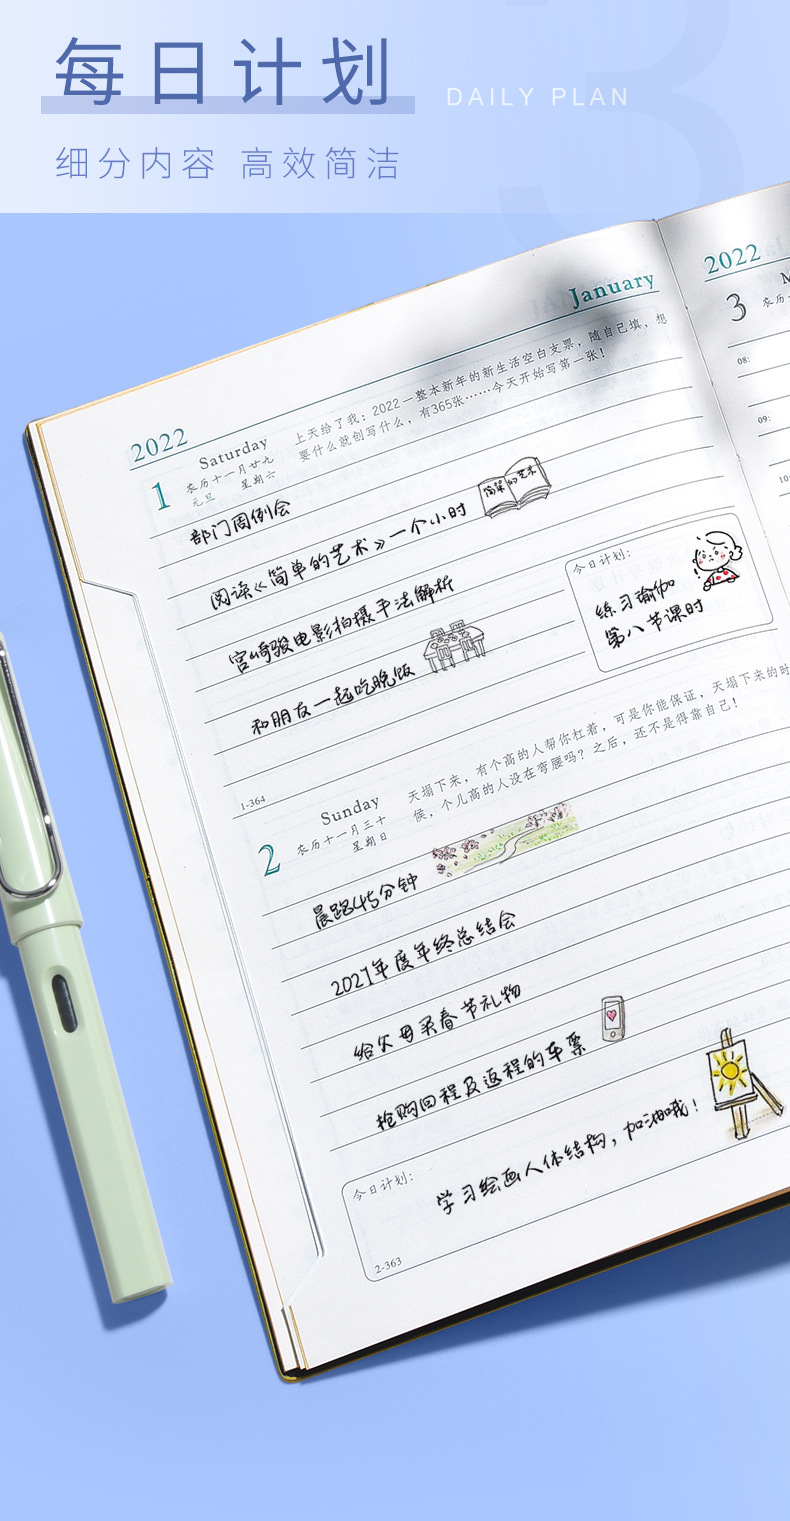 每日计划
DAILY PLAN
细分内容 高效简洁
3
2022
January
1
Saturday
农历十一月廿九
元旦 星期六
上天给了我:2022一整本新年的新生活空白支票,随自己填,想
要什么就创写什么,有365张……今天开始写第一张!
部门周例会
阅读《简单的艺术》一个小时
简单的艺术
宫崎骏电影拍摄手法解析
和朋友一起吃晚饭
今日计划:
练习瑜伽
第八节课时
1-364
2
Sunday
农历十一月三十
星期日
天塌下来,有个高的人帮你杠着,可是你能保证,天塌下来的时
候,个儿高的人没在弯腰吗?之后,还不是得靠自己!
晨跑45分钟
2021年度年终总结会
给父母买春节礼物
抢购回程及返程的车票
今日计划:
学习绘画人体结构,加油哦!
2-363
2022
3
农历
08:
09:
10: